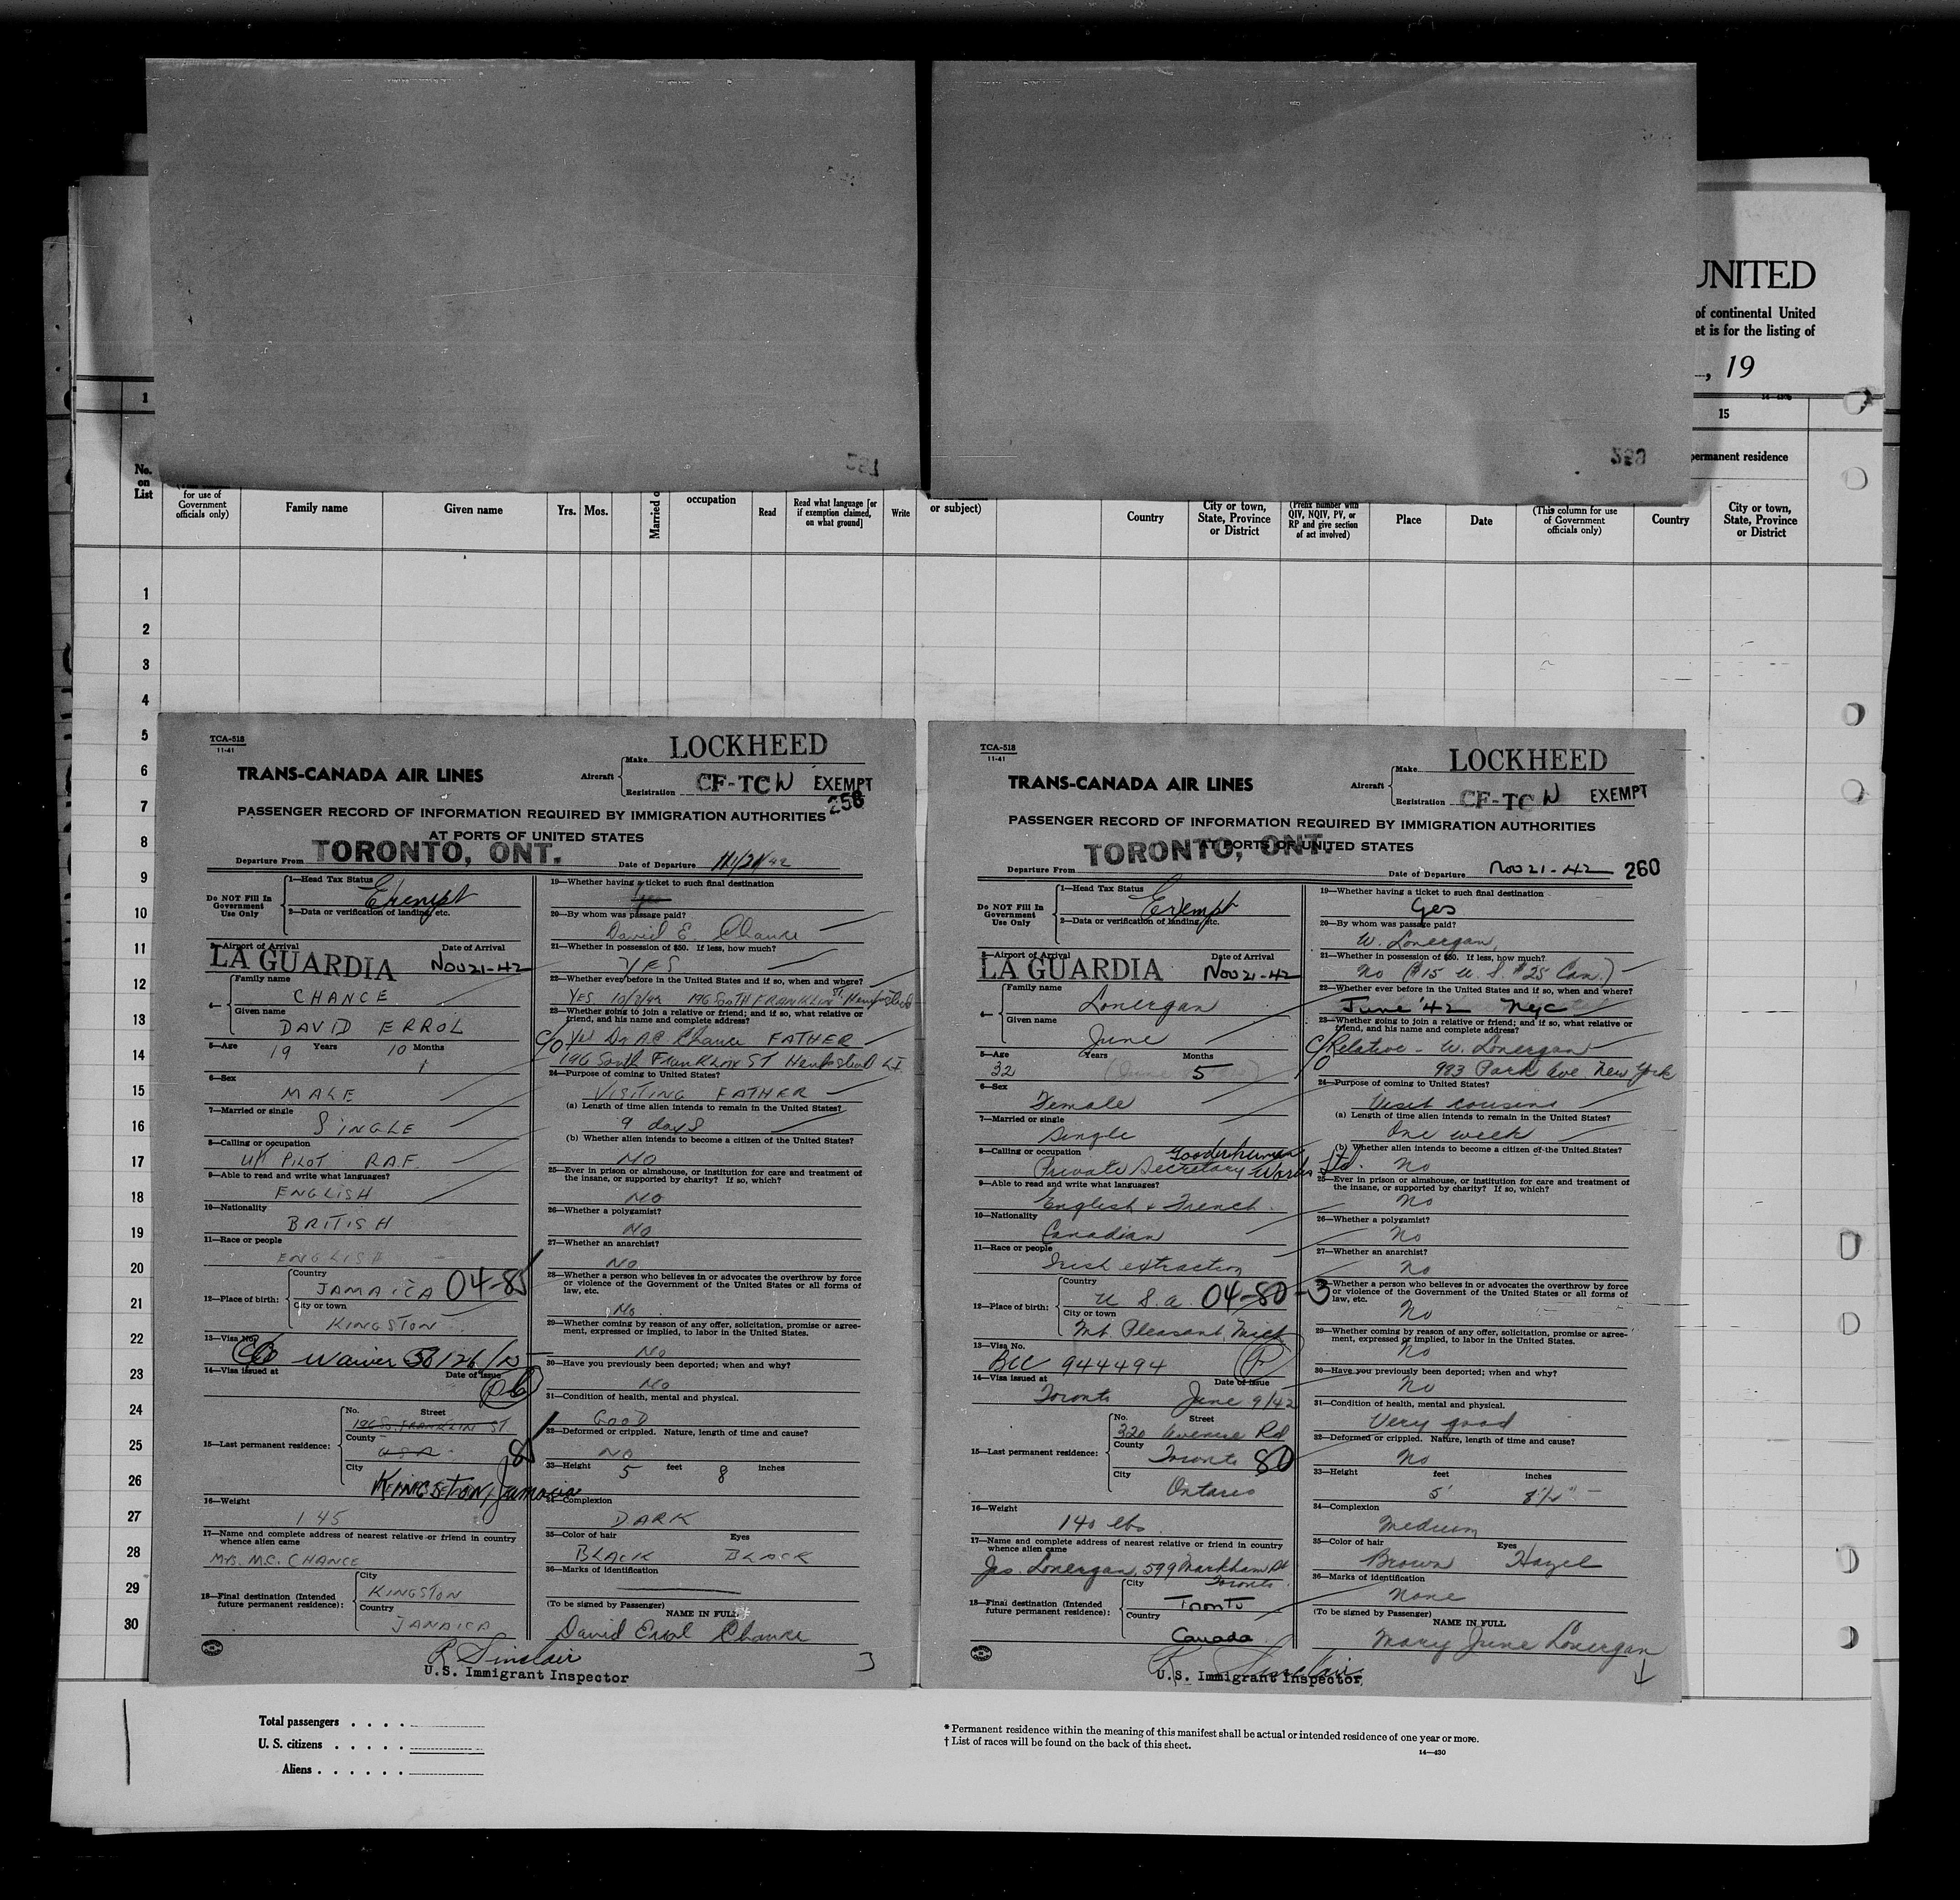 UNITED
of continental United
et is for the listing of
, 19
1
15
ermanent residence
No.
on
List
for use of
Government
officials only)
Family name
Given name
Yrs.
Mos.
Married o
occupation
Read
Read what language [or
if exemption claimed,
on what ground]
Write
or subject)
Country
City or town,
State, Province
or District
(Prefix number with
QIV, NQIV, PV, or
RP and give section
of act involved)
Place
Date
(This column for use
of Government
officials only)
Country
City or town,
State, Province
or District
1
2
3
4
5
6
7
8
9
10
11
12
13
14
15
16
17
18
19
20
21
22
23
24
25
26
27
28
29
30
TCA-518
11-41
LOCKHEED
TRANS-CANADA AIR LINES
Aircraft
Make
Registration CF-TC N EXEMPT
258
PASSENGER RECORD OF INFORMATION REQUIRED BY IMMIGRATION AUTHORITIES
AT PORTS OF UNITED STATES
Departure From TORONTO, ONT.
Date of Departure 11/21/42
Do NOT Fill In
Government
Use Only
1—Head Tax Status
Exempt
2—Data or verification of landing, etc.
3—Airport of Arrival
Date of Arrival
LA GUARDIA Nov 21-42
4—
Family name
CHANCE
Given name
DAVID ERROL
5—Age 19 Years 10 Months
6—Sex
MALE
7—Married or single
SINGLE
8—Calling or occupation
U/T PILOT RAF.
9—Able to read and write what languages?
ENGLISH
10—Nationality
BRITISH
11—Race or people
ENGLISH
12—Place of birth:
Country
JAMAICA 04-85
City or town
KINGSTON
13—Visa No.
Waiver 58126/N
14—Visa issued at
Date of issue
15—Last permanent residence:
No. Street
196 So. FRANKLIN ST
County
USA 85
City
KINGSTON, Jamaica
16—Weight
145
17—Name and complete address of nearest relative or friend in country
whence alien came
MRS. M.C. CHANCE
18—Final destination (Intended
future permanent residence):
City
KINGSTON
Country
JAMAICA
19—Whether having a ticket to such final destination
Yes
20—By whom was passage paid?
David E. Chance
21—Whether in possession of $50. If less, how much?
YES
22—Whether ever before in the United States and if so, when and where?
YES 10/3/42 196 SOUTH FRANKLIN ST Hempstead
23—Whether going to join a relative or friend; and if so, what relative or
friend, and his name and complete address?
c/o Yes Dr A.C. Chance FATHER
196 South Franklin ST Hempstead L.I.
24—Purpose of coming to United States?
VISITING FATHER
(a) Length of time alien intends to remain in the United States?
9 days
(b) Whether alien intends to become a citizen of the United States?
NO
25—Ever in prison or almshouse, or institution for care and treatment of
the insane, or supported by charity? If so, which?
NO
26—Whether a polygamist?
NO
27—Whether an anarchist?
NO
28—Whether a person who believes in or advocates the overthrow by force
or violence of the Government of the United States or all forms of
law, etc.
NO
29—Whether coming by reason of any offer, solicitation, promise or agree-
ment, expressed or implied, to labor in the United States.
NO
30—Have you previously been deported; when and why?
NO
31—Condition of health, mental and physical.
GOOD
32—Deformed or crippled. Nature, length of time and cause?
NO
33—Height 5 feet 8 inches
34—Complexion
DARK
35—Color of hair Eyes
BLACK BLACK
36—Marks of identification
(To be signed by Passenger)
NAME IN FULL
David Errol Chance
R Sinclair
U.S. Immigrant Inspector
3
TCA-518
11-41
LOCKHEED
TRANS-CANADA AIR LINES
Aircraft
Make
Registration CF-TC N EXEMPT
PASSENGER RECORD OF INFORMATION REQUIRED BY IMMIGRATION AUTHORITIES
AT PORTS OF UNITED STATES
Departure From TORONTO, ONT.
Date of Departure Nov 21-42 260
Do NOT Fill In
Government
Use Only
1—Head Tax Status
Exempt
2—Data or verification of landing, etc.
3—Airport of Arrival
Date of Arrival
LA GUARDIA Nov 21-42
4—
Family name
Lonergan
Given name
June
5—Age Years Months
32 5
6—Sex
Female
7—Married or single
Single
8—Calling or occupation
Gooderham
Private Secretary Works Ltd.
9—Able to read and write what languages?
English + French
10—Nationality
Canadian
11—Race or people
Irish extraction
12—Place of birth:
Country
U S.a. 04-80-3
City or town
Mt. Pleasant, Mich
13—Visa No.
BCC 944494
14—Visa issued at
Date of issue
Toronto June 9/42
15—Last permanent residence:
No. Street
320 Avenue Rd
County
Toronto 80
City
Ontario
16—Weight
140 lbs
17—Name and complete address of nearest relative or friend in country
whence alien came
Jas. Lonergan, 599 Markham St
Toronto
18—Final destination (Intended
future permanent residence):
City
Toronto
Country
Canada
19—Whether having a ticket to such final destination
Yes
20—By whom was passage paid?
W. Lonergan,
21—Whether in possession of $50. If less, how much?
No ($15 U.S. $25 Can.)
22—Whether ever before in the United States and if so, when and where?
June '42 Nyc
23—Whether going to join a relative or friend; and if so, what relative or
friend, and his name and complete address?
c/o Relative - W. Lonergan
983 Park Ave. New York
24—Purpose of coming to United States?
Visit cousins
(a) Length of time alien intends to remain in the United States?
One week
(b) Whether alien intends to become a citizen of the United States?
No
25—Ever in prison or almshouse, or institution for care and treatment of
the insane, or supported by charity? If so, which?
No
26—Whether a polygamist?
No
27—Whether an anarchist?
No
28—Whether a person who believes in or advocates the overthrow by force
or violence of the Government of the United States or all forms of
law, etc.
No
29—Whether coming by reason of any offer, solicitation, promise or agree-
ment, expressed or implied, to labor in the United States.
No
30—Have you previously been deported; when and why?
No
31—Condition of health, mental and physical.
Very good
32—Deformed or crippled. Nature, length of time and cause?
No
33—Height feet inches
5' 8½"
34—Complexion
Medium
35—Color of hair Eyes
Brown Hazel
36—Marks of identification
None
(To be signed by Passenger)
NAME IN FULL
Mary June Lonergan
R Sinclair
U.S. Immigrant Inspector
Total passengers . . . .
U. S. citizens . . . . .
Aliens . . . . . .
* Permanent residence within the meaning of this manifest shall be actual or intended residence of one year or more.
† List of races will be found on the back of this sheet.
14—430